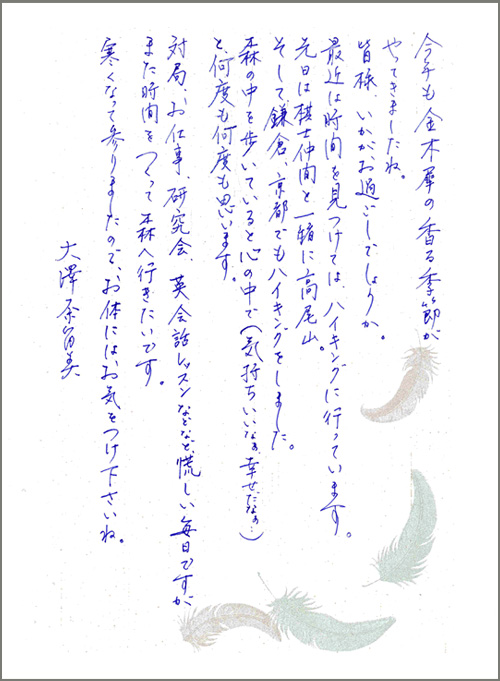 今年も金木犀の香る季節が
やってきましたね。
皆様、いかがお過ごしでしょうか。
最近は時間を見つけては、ハイキングに行っています。
先日は棋士仲間と一緒に高尾山。
そして鎌倉、京都でもハイキングをしました。
森の中を歩いていると心の中で（気持ちいいなぁ、幸せだなぁ…）
と、何度も何度も思います。
対局、お仕事、研究会、英会話レッスンなどなど、慌しい毎日ですが
また時間をつくって森へ行きたいです。
寒くなって参りましたので、お体にはお気をつけ下さいね。
大澤奈留美